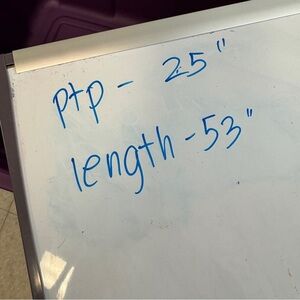 ptp - 25"
length - 53"